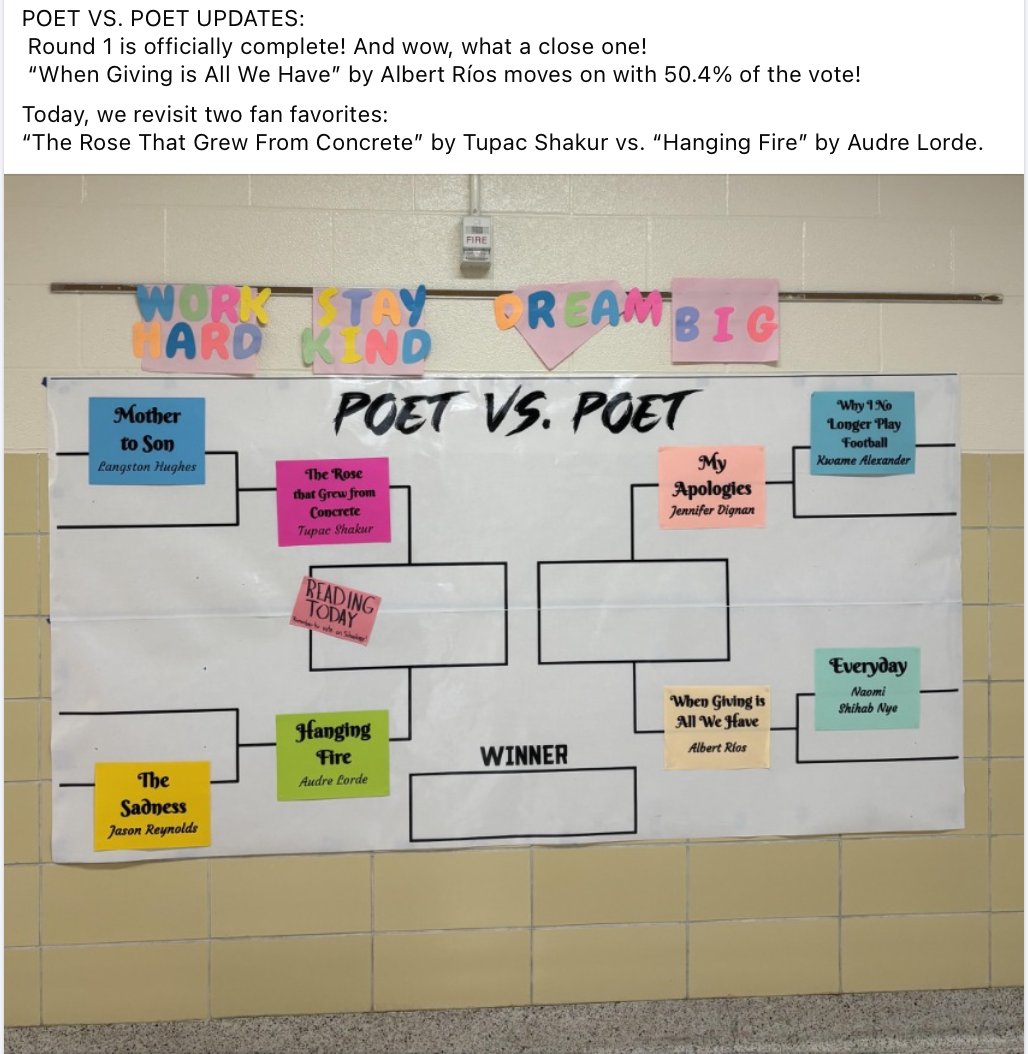 POET VS. POET UPDATES:
Round 1 is officially complete! And wow, what a close one!
“When Giving is All We Have” by Albert Ríos moves on with 50.4% of the vote!
Today, we revisit two fan favorites:
“The Rose That Grew From Concrete” by Tupac Shakur vs. “Hanging Fire” by Audre Lorde.
FIRE
WORK HARD
STAY KIND
DREAM
BIG
POET VS. POET
Mother
to Son
Langston Hughes
The Rose
that Grew from
Concrete
Tupac Shakur
READING
TODAY
Remember to vote on Schoology!
Hanging
Fire
Audre Lorde
The
Sadness
Jason Reynolds
My
Apologies
Jennifer Dignan
Why I No
Longer Play
Football
Kwame Alexander
Everyday
Naomi
Shihab Nye
When Giving is
All We Have
Albert Ríos
WINNER